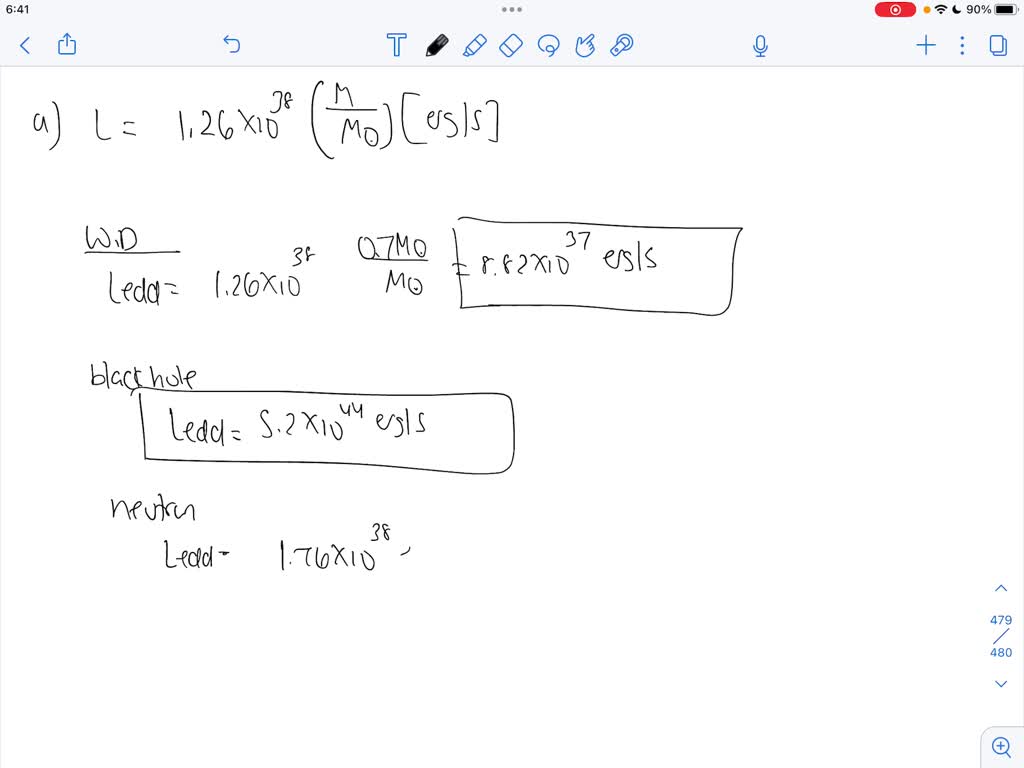 6:41
90%
a) L = 1.26×10^38 (M/M⊙) [erg/s]
W.D
Ledd = 1.26×10^38 0.7M⊙/M⊙ = 8.82×10^37 erg/s
black hole
Ledd = 5.2×10^44 erg/s
neutron
Ledd = 1.76×10^38
479
480